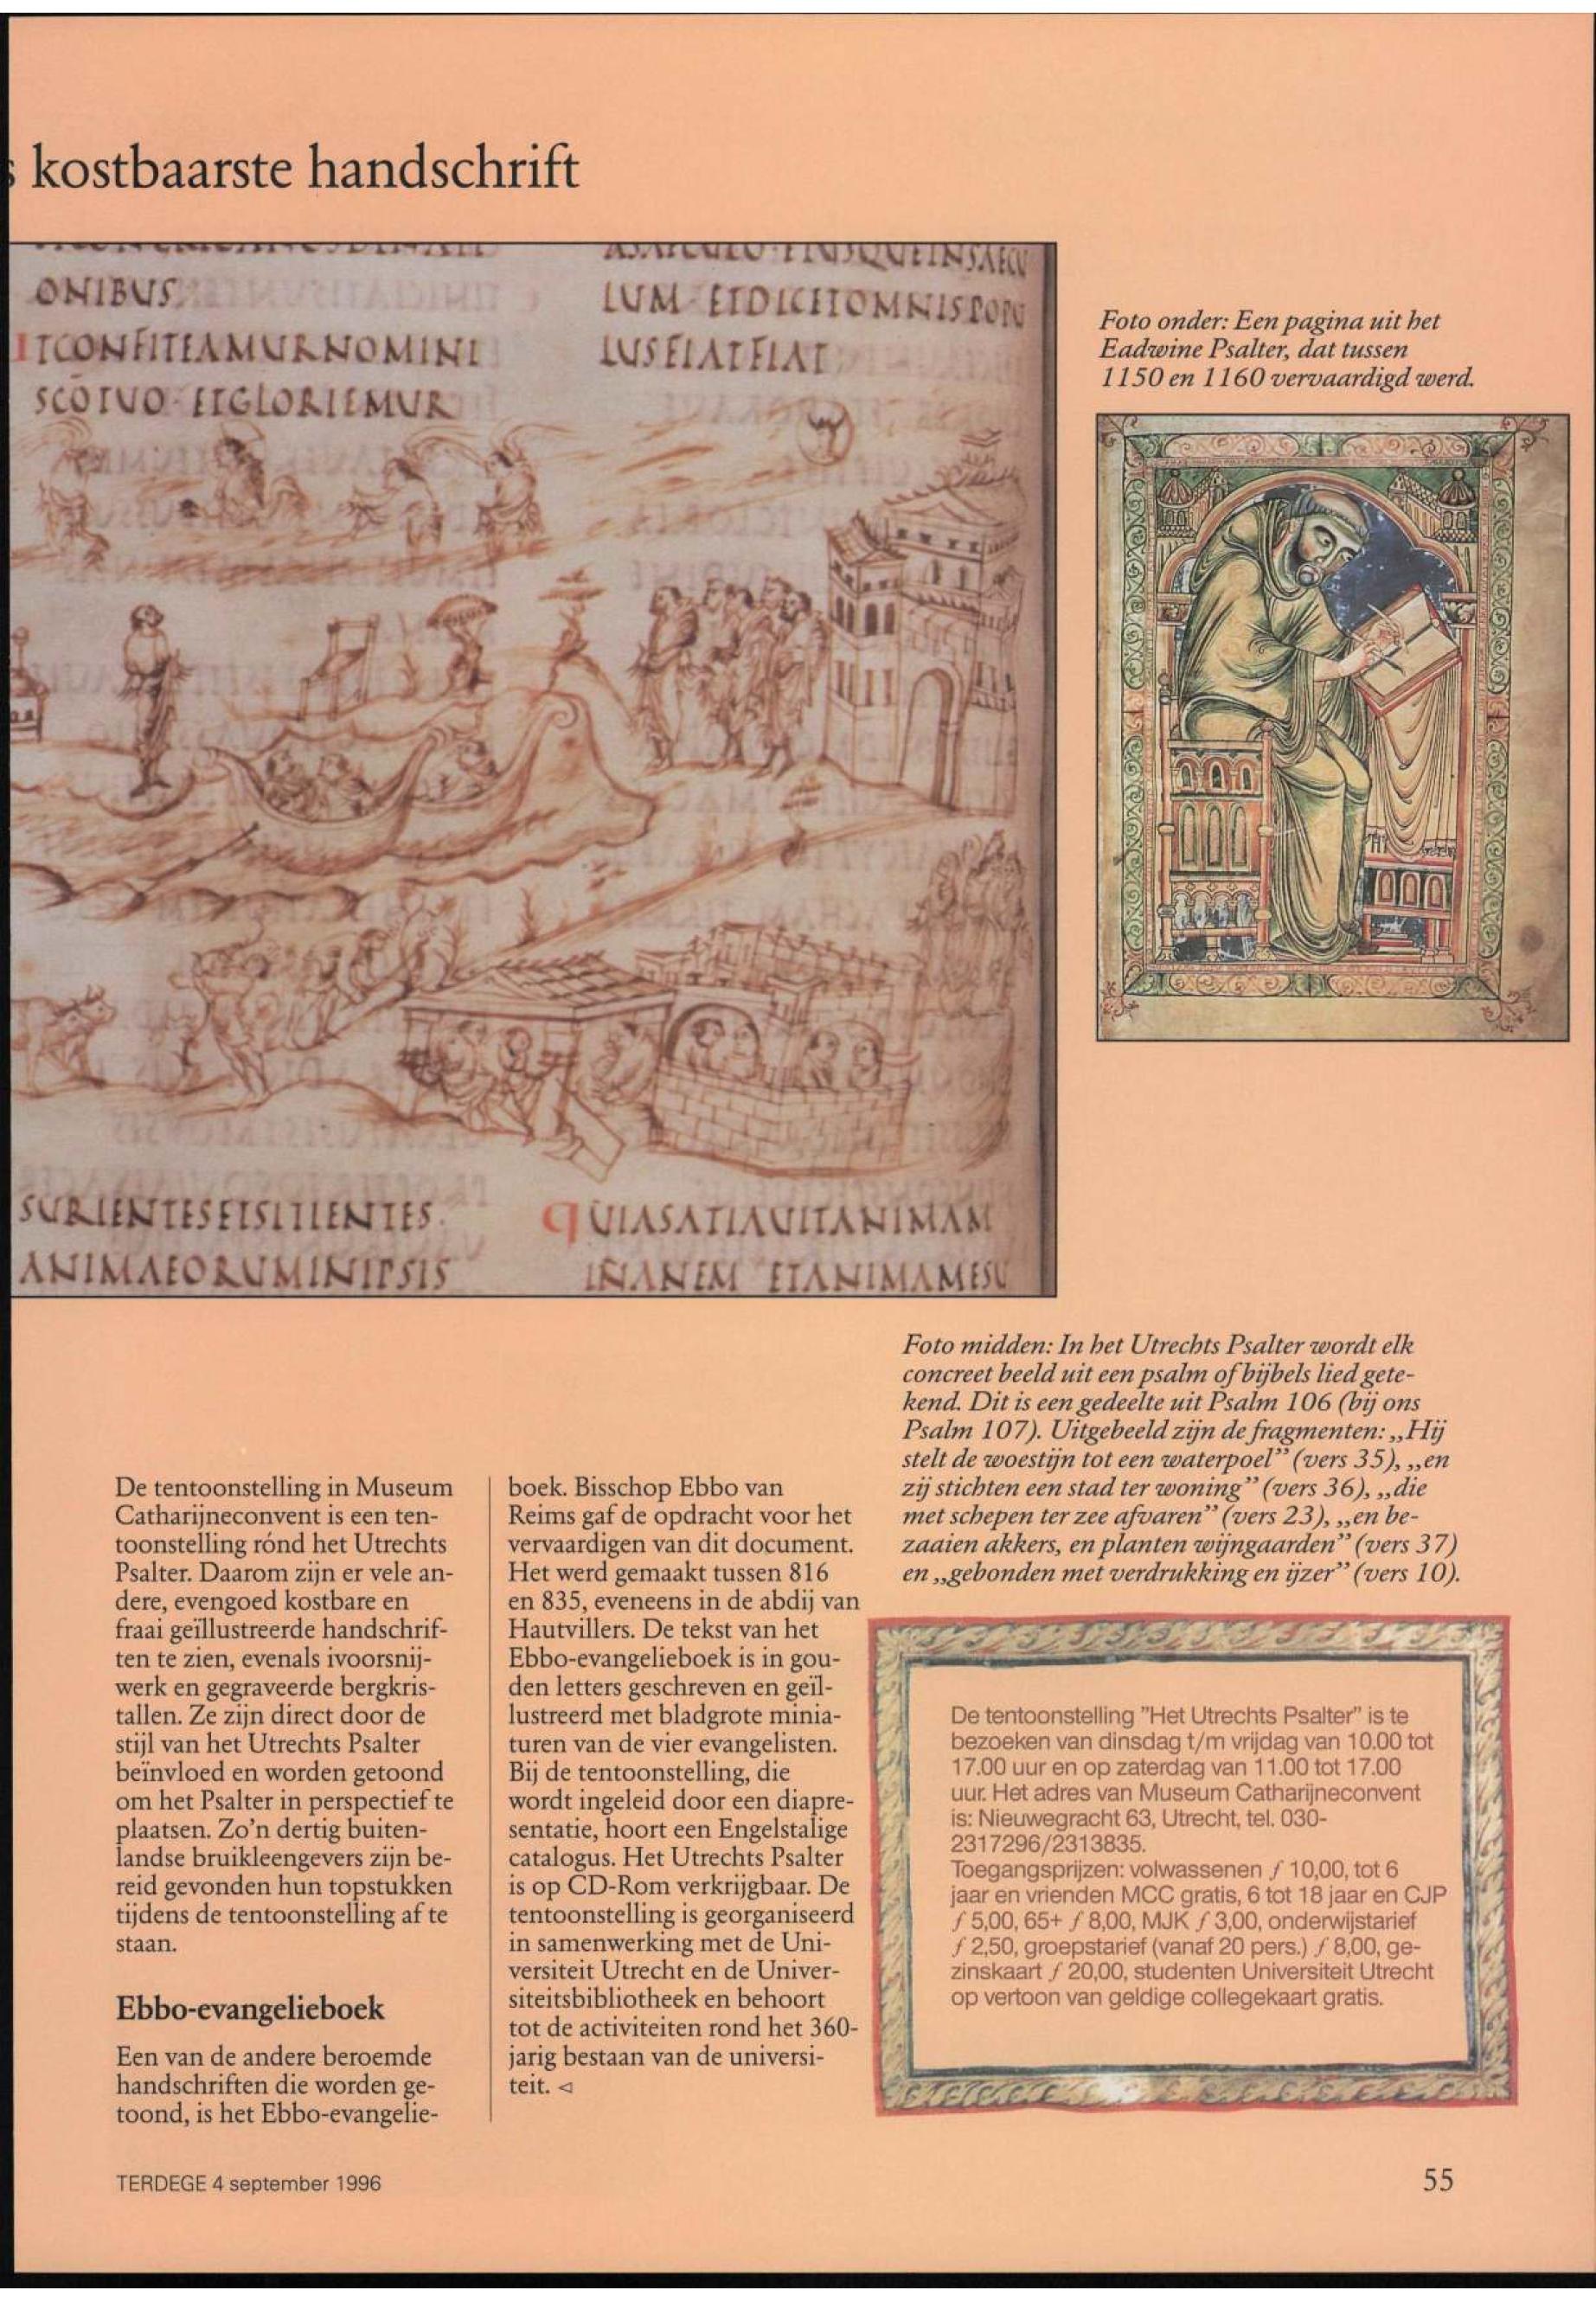 kostbaarste handschrift
ONIBUS
ITCONFITEAMURNOMINI
SCOTUO ETGLORIEMUR
LUM ETDICETOMNISPOPU
LUSFIATFIAT
Foto onder: Een pagina uit het
Eadwine Psalter, dat tussen
1150 en 1160 vervaardigd werd.
SURIENTESETSITIENTES
ANIMAEORUMINIPSIS
QUIASATIAUITANIMAM
INANEM ETANIMAMESU
Foto midden: In het Utrechts Psalter wordt elk
concreet beeld uit een psalm of bijbels lied gete-
kend. Dit is een gedeelte uit Psalm 106 (bij ons
Psalm 107). Uitgebeeld zijn de fragmenten: „Hij
stelt de woestijn tot een waterpoel” (vers 35), „en
zij stichten een stad ter woning” (vers 36), „die
met schepen ter zee afvaren” (vers 23), „en be-
zaaien akkers, en planten wijngaarden” (vers 37)
en „gebonden met verdrukking en ijzer” (vers 10).
De tentoonstelling in Museum
Catharijneconvent is een ten-
toonstelling rónd het Utrechts
Psalter. Daarom zijn er vele an-
dere, evengoed kostbare en
fraai geïllustreerde handschrif-
ten te zien, evenals ivoorsnij-
werk en gegraveerde bergkris-
tallen. Ze zijn direct door de
stijl van het Utrechts Psalter
beïnvloed en worden getoond
om het Psalter in perspectief te
plaatsen. Zo'n dertig buiten-
landse bruikleengevers zijn be-
reid gevonden hun topstukken
tijdens de tentoonstelling af te
staan.
Ebbo-evangelieboek
Een van de andere beroemde
handschriften die worden ge-
toond, is het Ebbo-evangelie-
boek. Bisschop Ebbo van
Reims gaf de opdracht voor het
vervaardigen van dit document.
Het werd gemaakt tussen 816
en 835, eveneens in de abdij van
Hautvillers. De tekst van het
Ebbo-evangelieboek is in gou-
den letters geschreven en geïl-
lustreerd met bladgrote minia-
turen van de vier evangelisten.
Bij de tentoonstelling, die
wordt ingeleid door een diapre-
sentatie, hoort een Engelstalige
catalogus. Het Utrechts Psalter
is op CD-Rom verkrijgbaar. De
tentoonstelling is georganiseerd
in samenwerking met de Uni-
versiteit Utrecht en de Univer-
siteitsbibliotheek en behoort
tot de activiteiten rond het 360-
jarig bestaan van de universi-
teit. ◁
De tentoonstelling "Het Utrechts Psalter" is te
bezoeken van dinsdag t/m vrijdag van 10.00 tot
17.00 uur en op zaterdag van 11.00 tot 17.00
uur. Het adres van Museum Catharijneconvent
is: Nieuwegracht 63, Utrecht, tel. 030-
2317296/2313835.
Toegangsprijzen: volwassenen ƒ 10,00, tot 6
jaar en vrienden MCC gratis, 6 tot 18 jaar en CJP
ƒ 5,00, 65+ ƒ 8,00, MJK ƒ 3,00, onderwijstarief
ƒ 2,50, groepstarief (vanaf 20 pers.) ƒ 8,00, ge-
zinskaart ƒ 20,00, studenten Universiteit Utrecht
op vertoon van geldige collegekaart gratis.
TERDEGE 4 september 1996
55